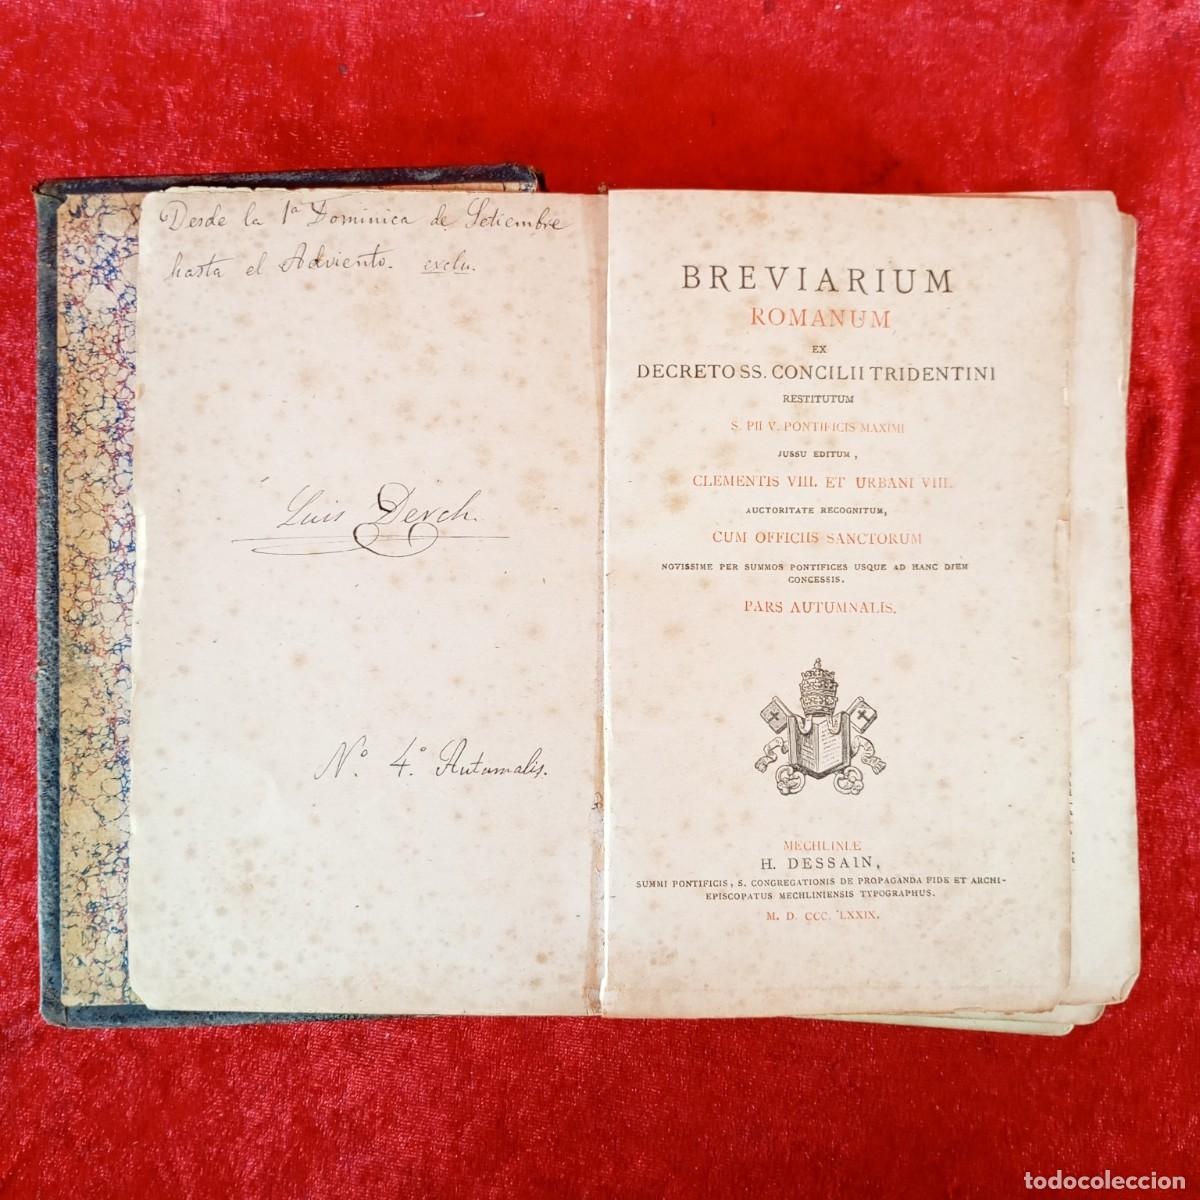 Desde la 1ª Dominica de Setiembre
hasta el Adviento. exclu.
Luis Derch.
Nº. 4.º Autumalis.
BREVIARIUM
ROMANUM
EX
DECRETO SS. CONCILII TRIDENTINI
RESTITUTUM
S. PII V. PONTIFICIS MAXIMI
JUSSU EDITUM,
CLEMENTIS VIII. ET URBANI VIII.
AUCTORITATE RECOGNITUM,
CUM OFFICIIS SANCTORUM
NOVISSIME PER SUMMOS PONTIFICES USQUE AD HANC DIEM
CONCESSIS.
PARS AUTUMNALIS.
MECHLINIÆ
H. DESSAIN,
SUMMI PONTIFICIS, S. CONGREGATIONIS DE PROPAGANDA FIDE ET ARCHI-
EPISCOPATUS MECHLINIENSIS TYPOGRAPHUS.
M. D. CCC. LXXIX.
todocoleccion